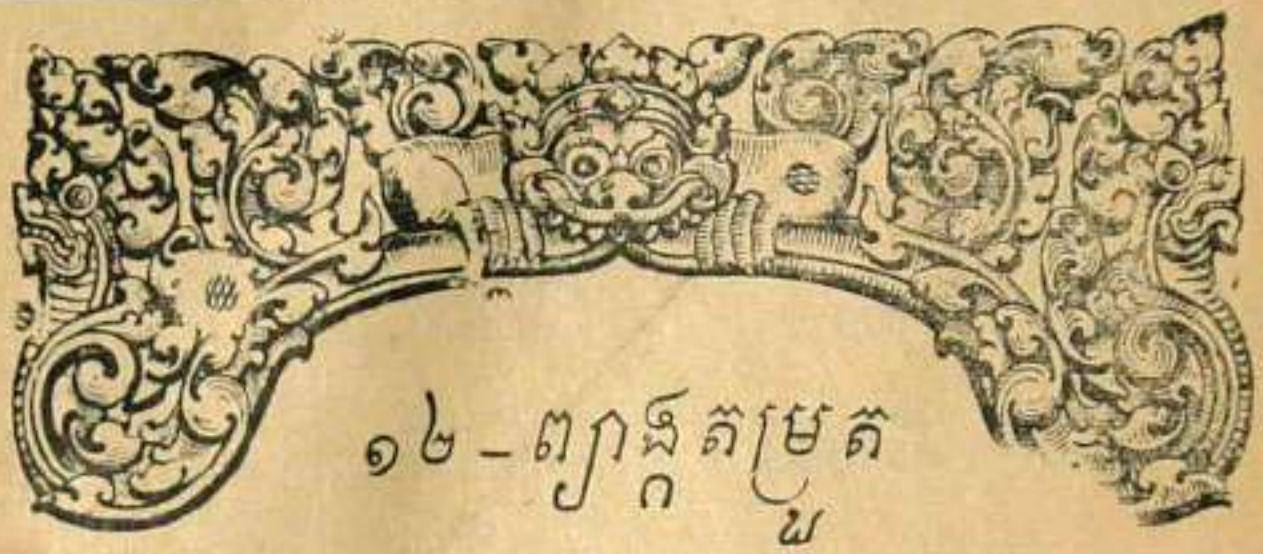 ១២-ព្យាង្គតម្រួត